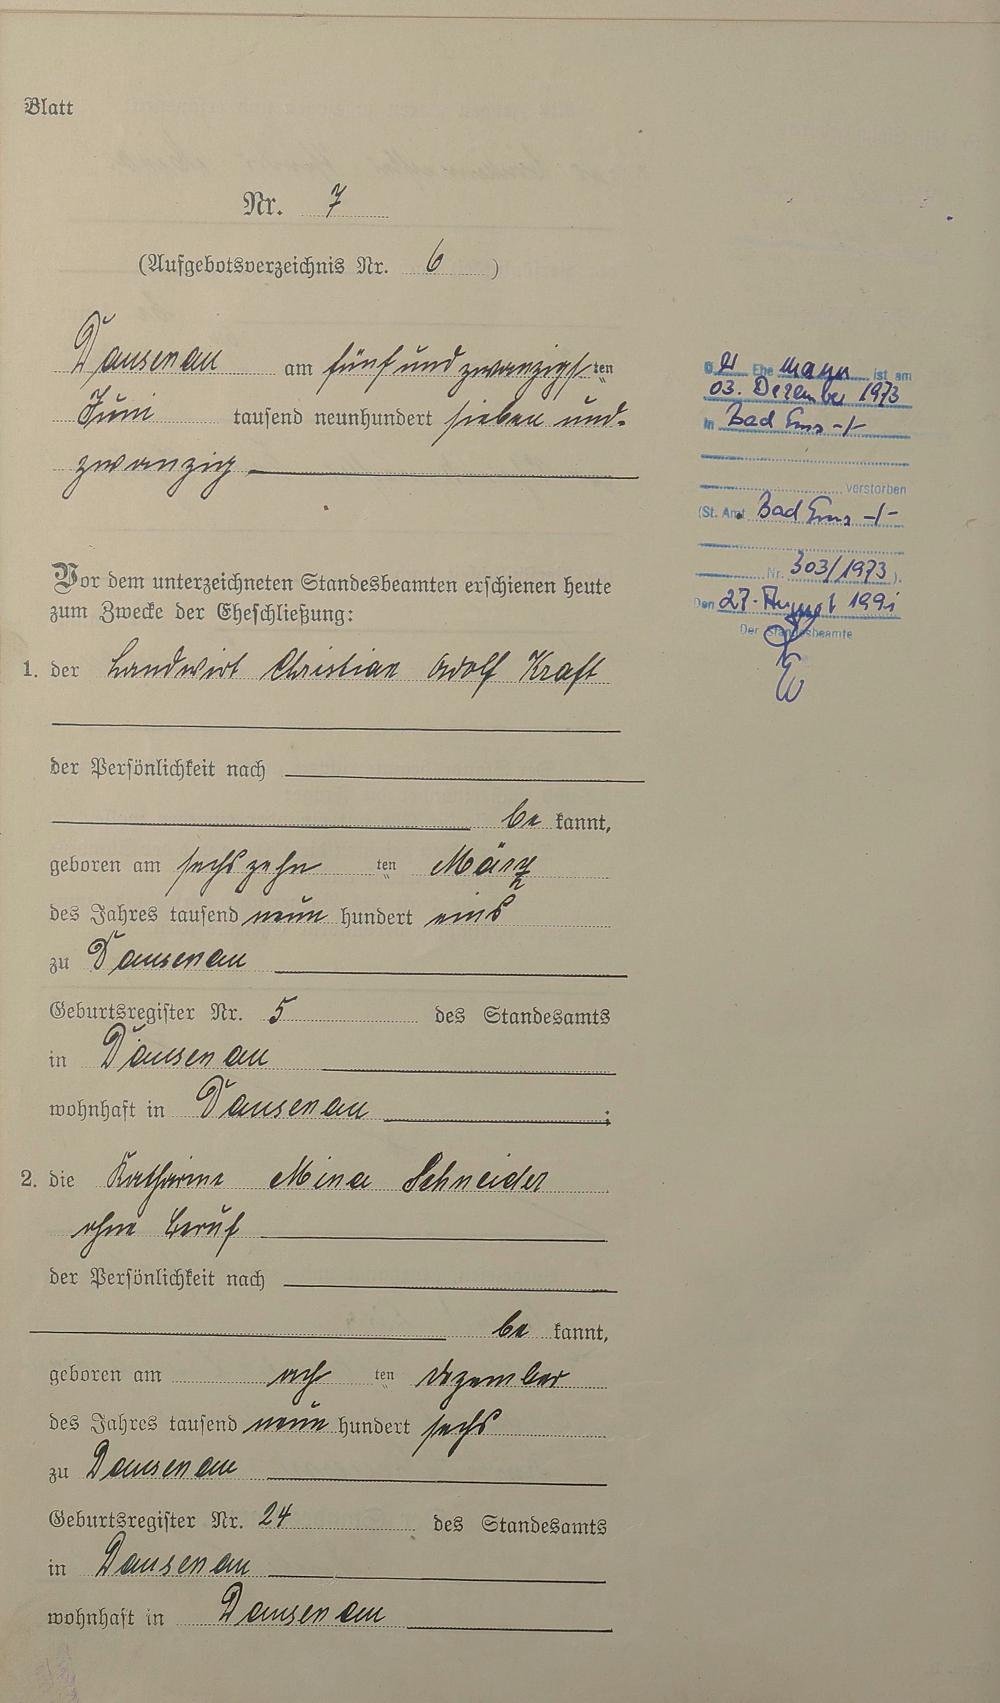 Blatt
Nr. 7
(Aufgebotsverzeichnis Nr. 6 )
Dausenau am fünf und zwanzigsten
Juni tausend neunhundert sieben und-
zwanzig
Vor dem unterzeichneten Standesbeamten erschienen heute
zum Zwecke der Eheschließung:
1. der Landwirt Christian Adolf Kraft
der Persönlichkeit nach
be kannt,
geboren am sechszehn ten März
des Jahres tausend neun hundert eins
zu Dausenau
Geburtsregister Nr. 5 des Standesamts
in Dausenau
wohnhaft in Dausenau ;
2. die Katharine Mina Schneider
ohne Beruf
der Persönlichkeit nach
be kannt,
geboren am ach ten Dezember
des Jahres tausend neun hundert sechs
zu Dausenau
Geburtsregister Nr. 24 des Standesamts
in Dausenau
wohnhaft in Dausenau
Ehemann ist am
03. Dezember 1973
in Bad Ems -/-
verstorben
(St. Amt Bad Ems -/-
Nr. 303/1973 ).
Den 27. August 1991
Der Standesbeamte